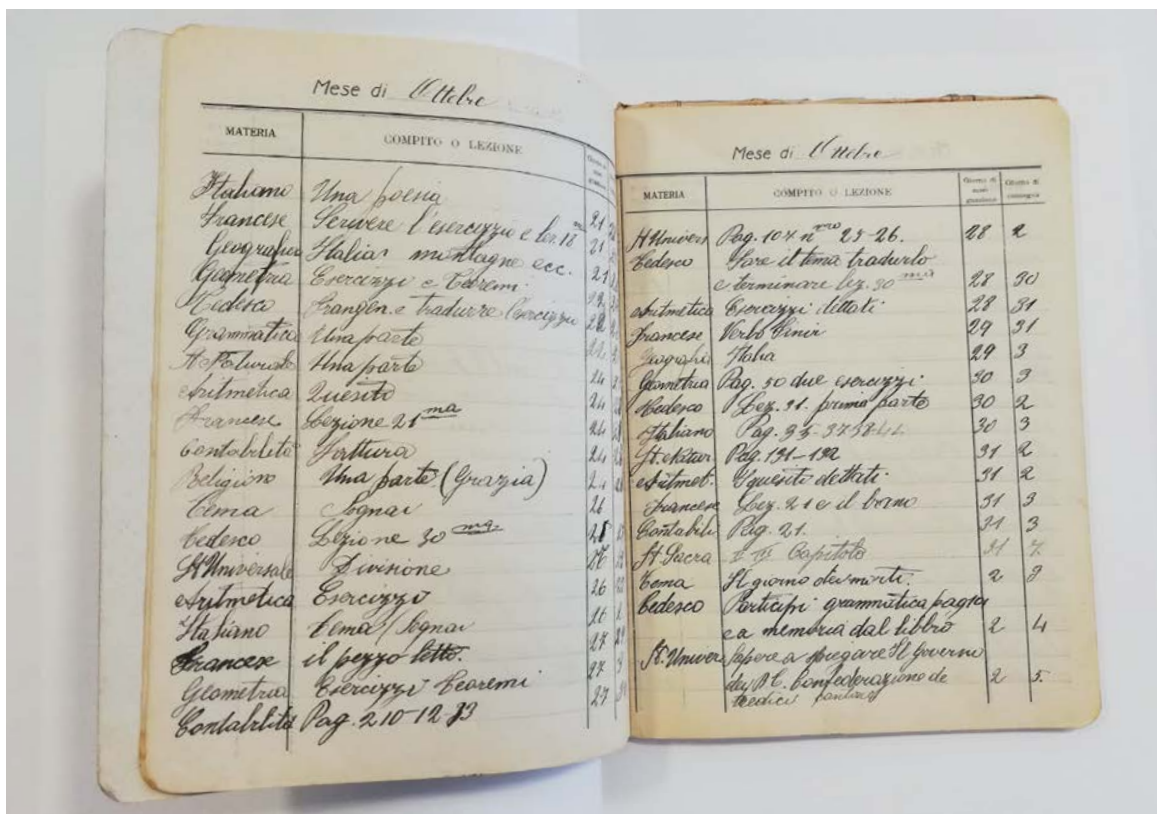 Mese di Ottobre
MATERIA COMPITO O LEZIONE
Italiano Una poesia
Francese Scrivere l'esercizzio e lez. 18 21
Geografia Italia: montagne ecc. 21
Geometria Esercizzi e Teoremi. 21
Tedesco e tradurre l'esercizzio 22
Grammatica Una parte
Una parte
Aritmetica Quesito 24
Francese Lezione 21ma 24
Contabilità Fattura 24
Religione Una parte (Grazia)
Tema Sognai 26
Tedesco Lezione 30ma
St Universale Divisione
Aritmetica Esercizzo 26
Italiano Tema Sognai 27
Francese il pezzo letto. 27
Geometria Esercizzi Teoremi 27
Contabilità Pag. 210-12-13
Mese di Ottobre
MATERIA COMPITO O LEZIONE Giorno di asse-gnazione Giorno di consegna
St Univers Pag. 104 nero 25-26. 28 2
Tedesco Fare il tema tradurlo
e terminare lez. 30ma 28 30
Aritmetica Esercizzi dettati 28 31
Francese Verbo Finir 29 31
Geografia Italia 29 3
Geometria Pag. 50 due esercizzi. 30 3
Tedesco Lez. 31. prima parte 30 2
Italiano Pag. 35-37 30 3
St. Natur. Pag. 191-192 31 2
Aritmet. I quesiti dettati. 31 2
Francese Lez. 21 e il 31 3
Contabili Pag. 21. 31 3
St Sacra Capitolo 31 7.
Tema Il giorno dei morti. 2
Tedesco Participi grammatica pagina
e a memoria dal libbro 2 4
St. Univer Sapere a spiegare Il Governo
Confederazione de 2 5.
tredici cantoni